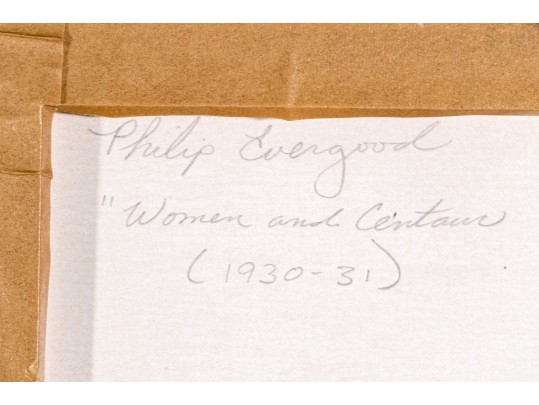 Philip Evergood
"Women and Centaur
(1930-31)